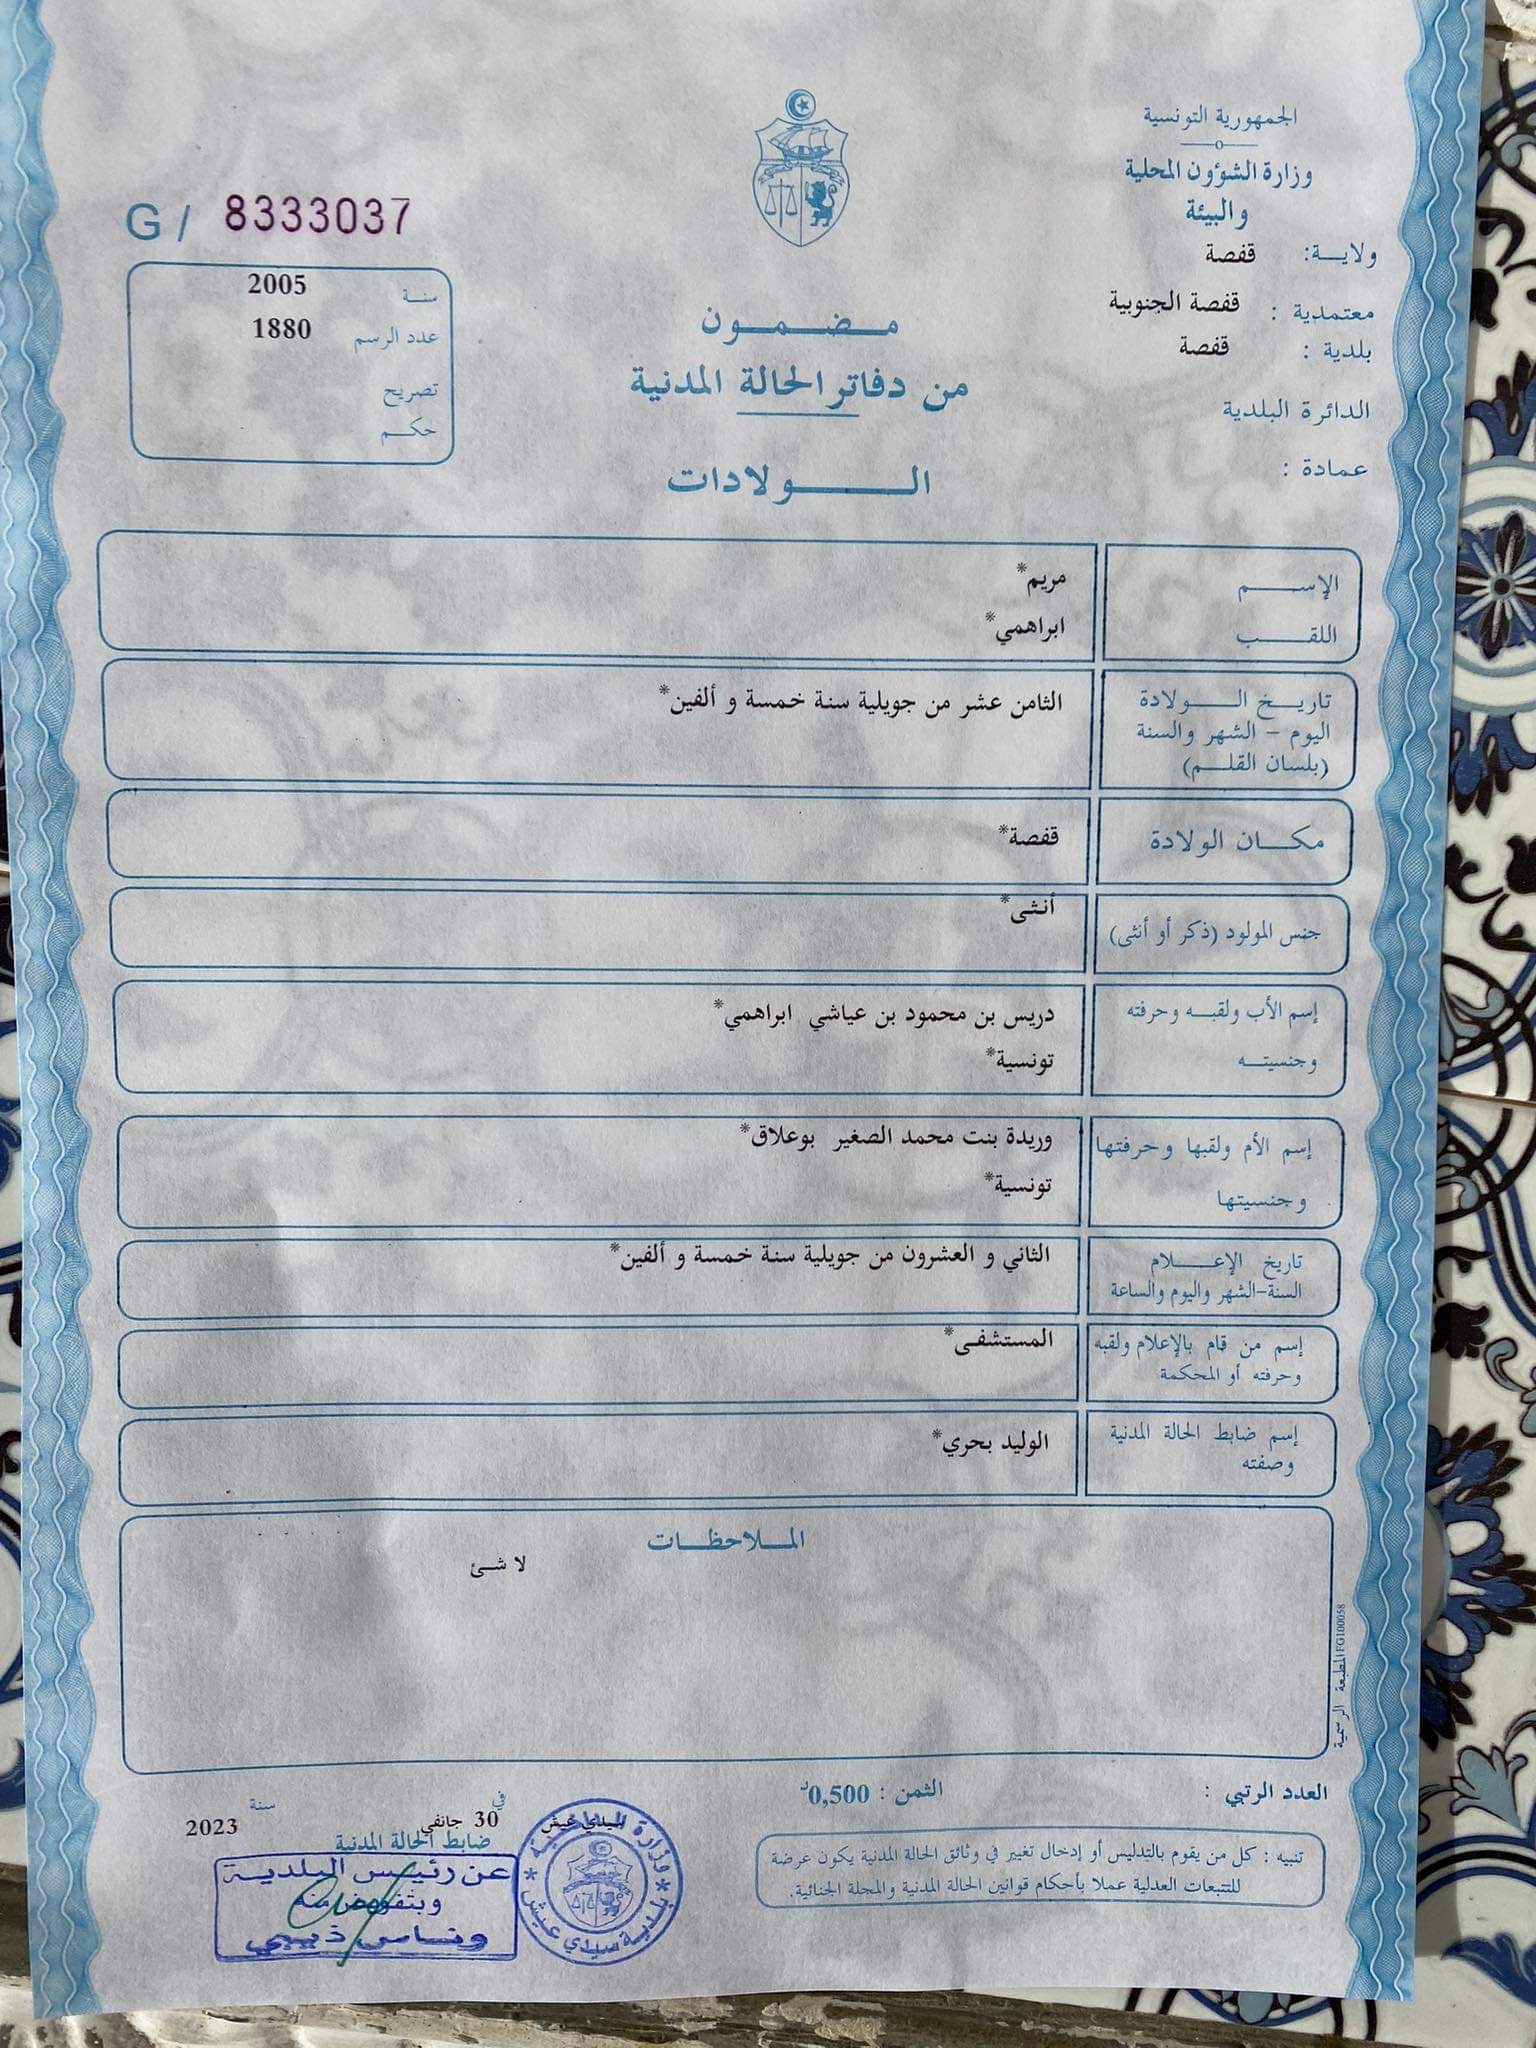 الجمهورية التونسية
وزارة الشؤون المحلية
والبيئة
ولاية: قفصة
معتمدية : قفصة الجنوبية
بلدية : قفصة
الدائرة البلدية
عمادة :
G / 8333037
سنة 2005
عدد الرسم 1880
تصريح
حكم
مضمون
من دفاتر الحالة المدنية
الولادات
الإسم مريم*
اللقب ابراهمي*
تاريخ الولادة الثامن عشر من جويلية سنة خمسة و ألفين*
اليوم - الشهر والسنة
(بلسان القلم)
مكان الولادة قفصة*
جنس المولود (ذكر أو أنثى) أنثى*
إسم الأب ولقبه وحرفته دريس بن محمود بن عياشي ابراهمي*
وجنسيته تونسية*
إسم الأم ولقبها وحرفتها وريدة بنت محمد الصغير بوعلاق*
وجنسيتها تونسية*
تاريخ الإعلام الثاني و العشرون من جويلية سنة خمسة و ألفين*
السنة-الشهر واليوم والساعة
إسم من قام بالإعلام ولقبه المستشفى*
وحرفته أو المحكمة
إسم ضابط الحالة المدنية الوليد بحري*
وصفته
الملاحظات
لا شئ
المطبعة الرسمية FG100058
العدد الرتبي :
الثمن : 0,500د
تنبيه : كل من يقوم بالتدليس أو إدخال تغيير في وثائق الحالة المدنية يكون عرضة
للتتبعات العدلية عملا بأحكام قوانين الحالة المدنية والمجلة الجنائية.
سيدي عيش في 30 جانفي سنة 2023
ضابط الحالة المدنية
عن رئيس البلدية
وبتفويض منه
وناس ذيبي
وزارة الداخلية
بلدية سيدي عيش